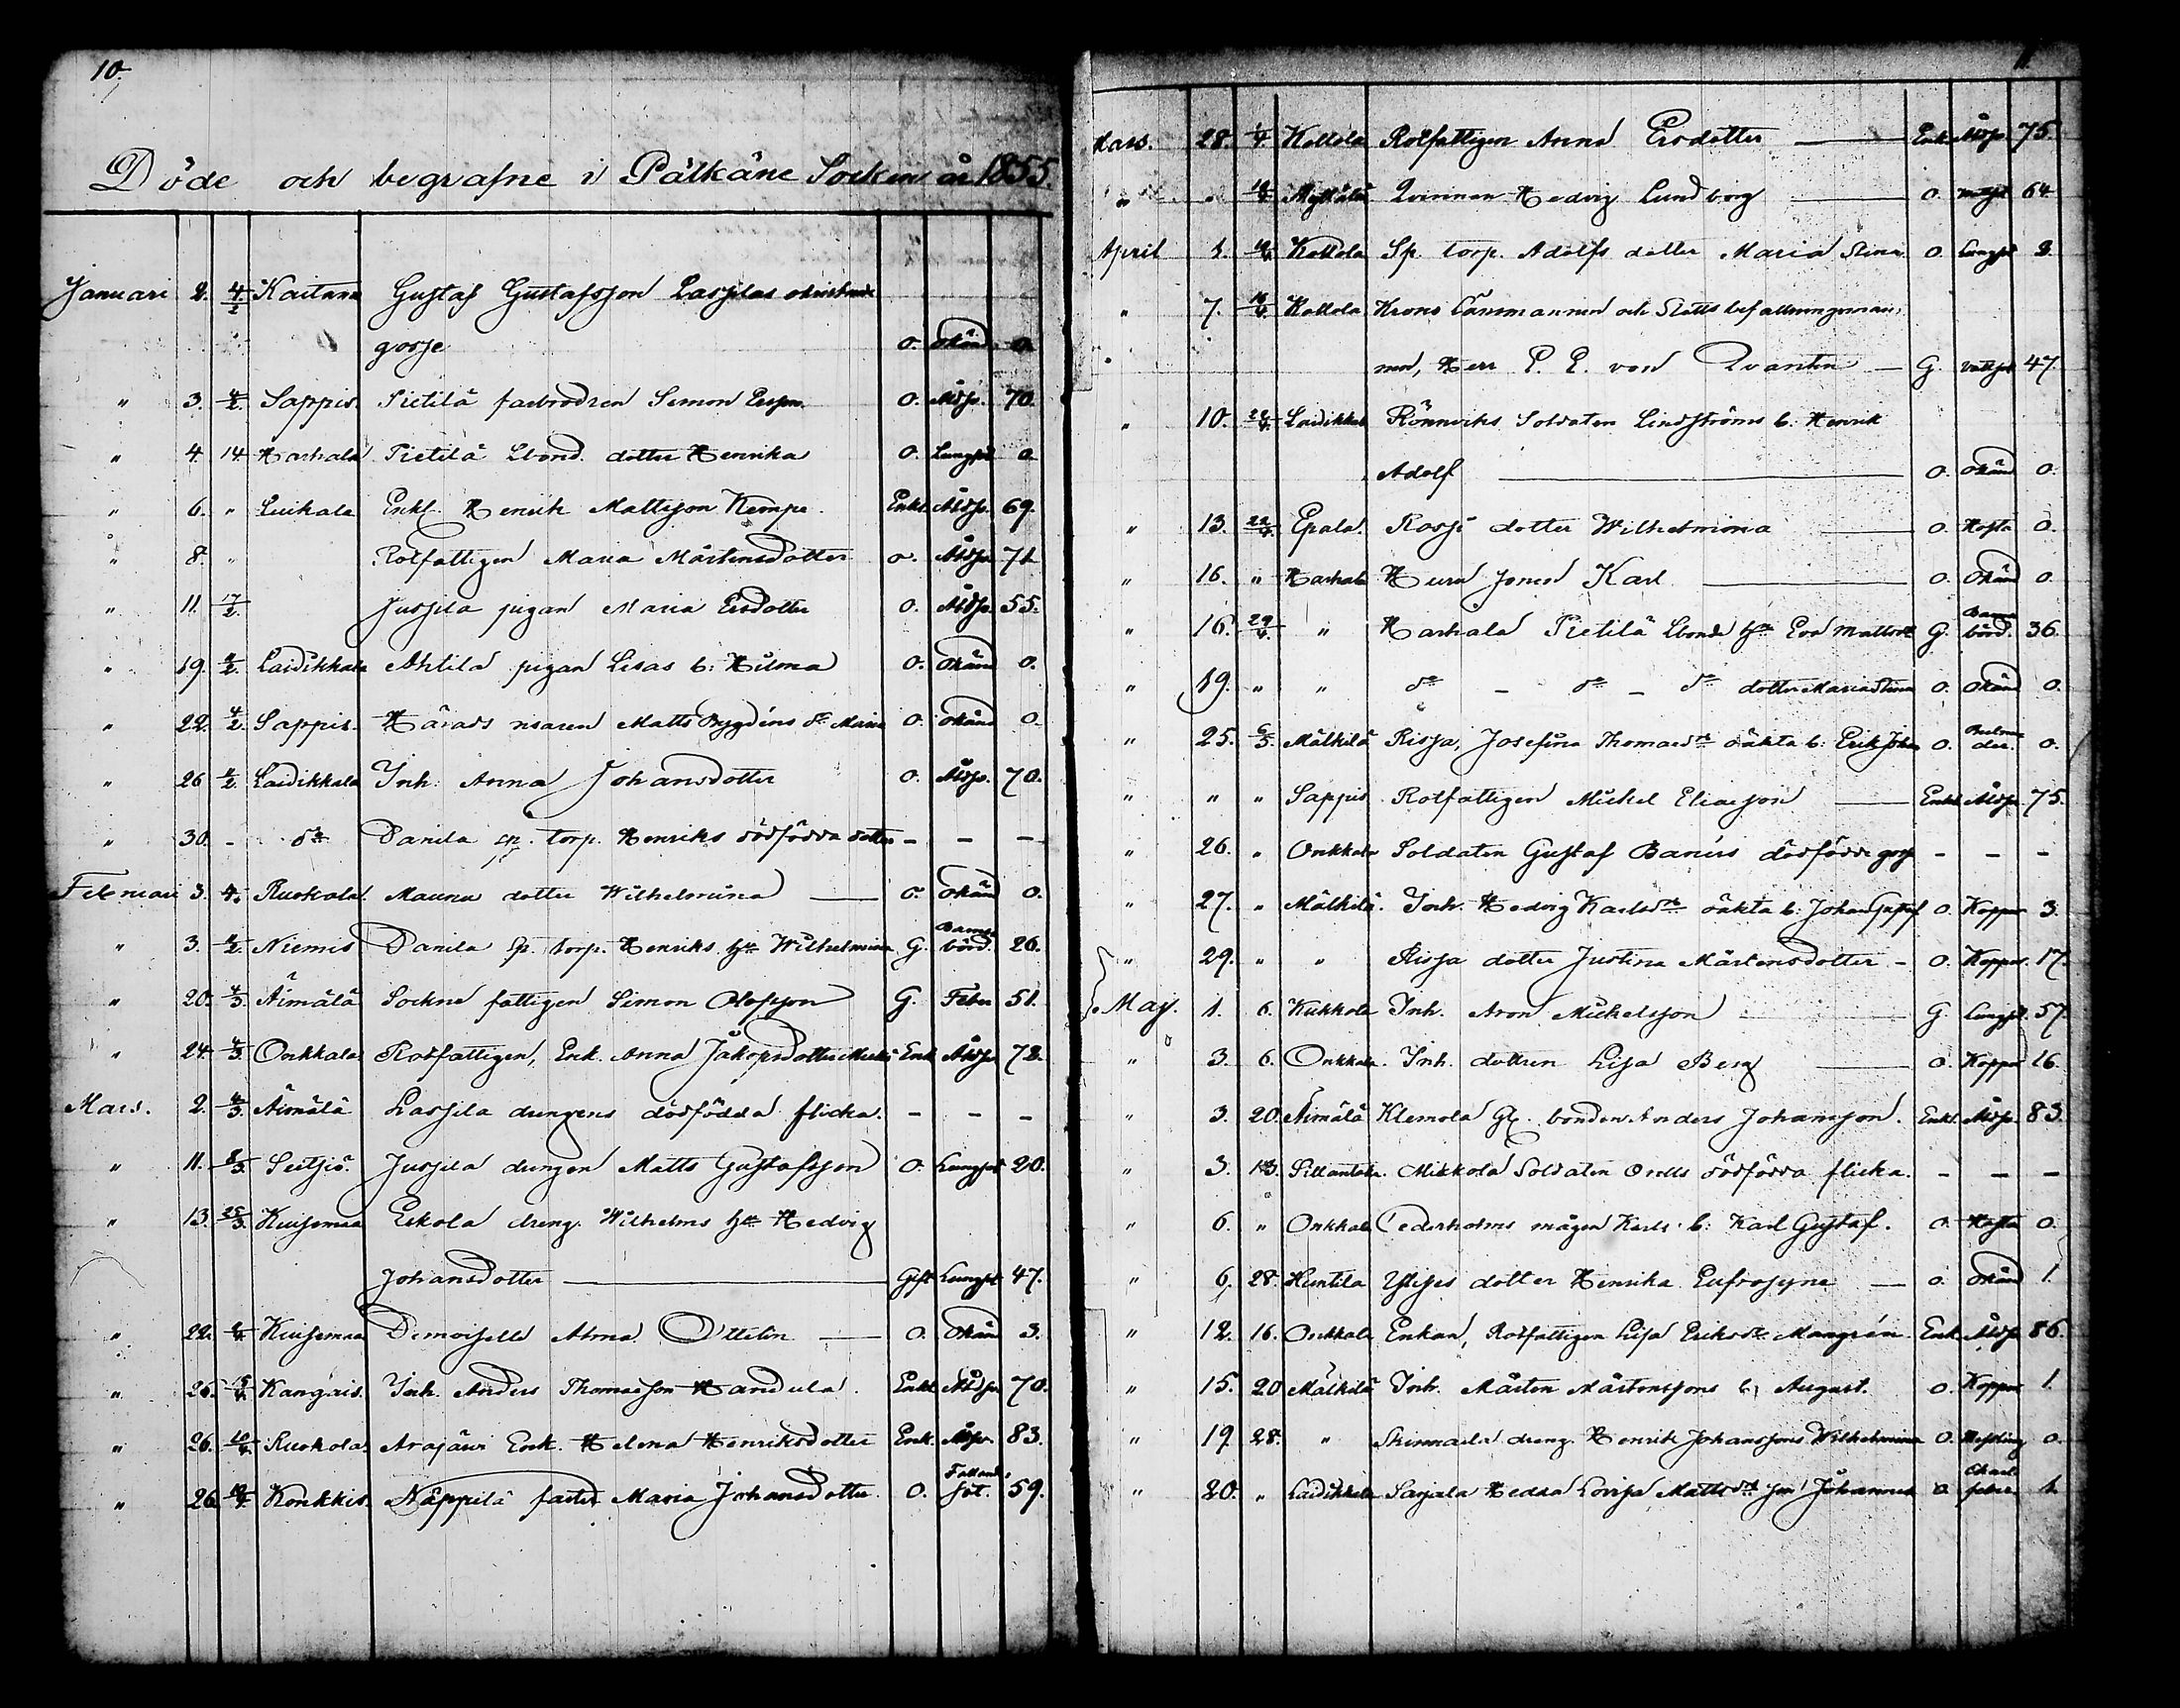 10.
Döde och begrafne i Pälkäne Socken år 1855.
Januari 2. 4/2 Kaitana Gustaf Gustafsson Lassilas
gosse o. Okänd o.
" 3. 4/2. Sappis. Pietilä farbrodren Simon Ersson. o. Åldr. 70.
" 4. 14. Harhala Pietilä Lbond. dotter Henrika o. Lungsot o.
" 6. " Luikala Enkl. Henrik Mattsson Kempe. Enkl. Åldr. 69.
" 8. " Rotfattigen Maria Mårtensdotter o. Åldr. 71.
" 11. 17/2. Jussila pigan Maria Ersdotter o. Åldr. 55.
" 19. 4/2. Laidikkala Ahlila pigan Lisas b: Hilma o. Okänd o.
" 22. 4/2. Sappis. Härads risaren Matts Bygdéns dr Maria o. Okänd o.
" 26 4/2. Laidikkala Inh. Anna Johansdotter o. Åldr. 70.
" 30. - do Danila sp. torp. Henriks dödfödda dotter - - -
Februari 3. 4. Ruokola. Mauna dotter Wilhelmina o. Okänd o.
" 3. 4/2. Niemis Danila sp. torp. Henriks hu Wilhelmina G. Barnsbörd. 26.
" 20. 4/3. Äimälä Sockne fattigen Simon Olofsson G. Feber 51.
" 24. 4/3. Onkkala Rotfattigen, Enk. Anna Jakopsdotter Enk. Åldr. 72.
Mars. 2. 4/3. Äimälä Lassila drengens dödfödda flicka. - - -
" 11. 8/3. Seitjis. Jussila drengen Matts Gustafsson o. Lungsot 20.
" 13. 25/3. Kuisemaa Eskola dreng. Wilhelms hu Hedvig
Johansdotter Gift Lungsot 47.
" 22. Kuisemaa Demoiselle Alma Ottelin o. Okänd 3.
" 26. 15/4. Kangais. Inh. Anders Thomasson Handula. Enkl. Åldr. 70.
" 26. 10/4. Ruokola. Arajärvi Enk. Helena Henriksdotter Enk. Åldr. 83.
" 26 Konkkis. Näppilä faster Maria Johansdotter. o. Fallandesot. 59.
11
Mars. 28. 1/4. Kollola Rotfattigen Anna Ersdotter Enk. Åldr. 75.
" " Myttälä Qvinnan Hedvig Lundborg o. Vattsot 64.
April 1. Kollola Sp. torp. Adolfs dotter Maria Stina o. Lungsot 2.
" 7. Kollola Krono Länsmannen och Slotts befallningsman,
nen, Herr P. E. von Qvanten G. Vattsot 47.
" 10. 22/4. Laidikkala Rönnviks Soldaten Lindströms b: Henrik
Adolf o. Okänd o.
" 13. 22/4. Epala. Rossi dotter Wilhelmina o. Hosta o.
" 16. " Harhala Heurn sonen Karl o. Okänd o.
" 16. 29/4. " Harhala Pietilä Lbonde hu Eva Mattsdr G. Barnsbörd. 36.
" 19. " " do - do - do dotter Maria Stina o. Okänd o.
" 25. 6/5. Mälkilä Rissa, Josefina Thomasdr oäkta b: Erik Johan o. o.
" " " Sappis. Rotfattigen Mickel Eliasson Enkl. Åldr. 75.
" 26. " Onkkala Soldaten Gustaf Baners dödfödde gosse - - -
" 27. " Mälkilä. Inh. Hedvig Karlsdr oäkta b: Johan Gustaf o. Koppor 3.
" 29. " " Rissa dotter Justina Mårtensdotter - o. Koppor 17.
Maj. 1. 6. Kukkola Inh. Aron Mickelsson G. Lungsot. 57.
" 3. 6. Onkkala. Inh. dottren Lisa Berg o. Koppor 16.
" 3. 20. Äimälä Klemola Gl. bonden Anders Johansson. Enkl. Åldr. 83.
" 3. 13. Sillantaka Mikkola Soldaten Orells dödfödda flicka. - - -
" 6. " Onkkala Cederholms mågen Karls b: Karl Gustaf. o. Hosta o.
" 6. 28. Huntila dotter Henrika Eufrosyne o. Okänd 1.
" 12. 16. Onkkala Enkan, Rotfattigen Lisa Eriksdr Mangrén Enk. Åldr. 86.
" 15. 20 Mälkilä Inh. Mårten Mårtenssons b, August. o. Koppor 1.
" 19. 28. " Skinnaela dreng. Henrik Johanssons Wilhelmina o. Messling o.
" 20. " Laidikkala Sarjala Hedda Lovisa Mattsdr son Johannes o. Scharl. feber. 1.